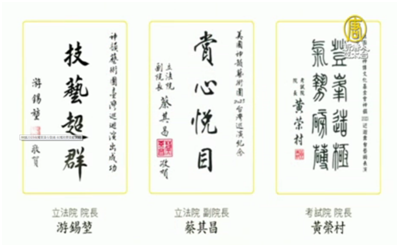 神韻藝術團臺灣巡迴演出成功
技藝超群
游錫堃
敬賀
美國神韻藝術團2023台灣巡演紀念
賞心悅目
立法院
副院長
蔡其昌
敬賀
登峯造極
氣勢磅礴
考試院
院長
黃榮村
立法院 院長
游錫堃
立法院 副院長
蔡其昌
考試院 院長
黃榮村